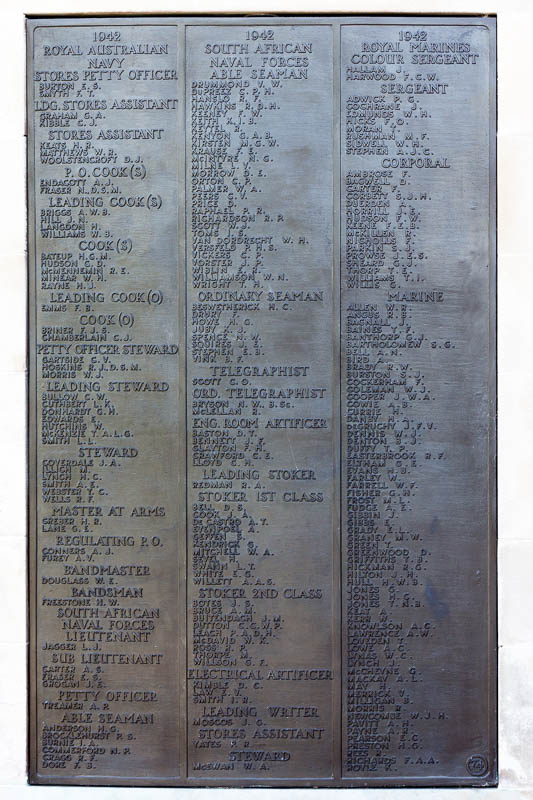 1942
ROYAL AUSTRALIAN
NAVY
STORES PETTY OFFICER
BURTON E. S.
SMYTH F. T.
LDG. STORES ASSISTANT
GRAHAM G. A.
KIBBLE C. J.
STORES ASSISTANT
KEATS H. R.
MATTHEWS W. R.
WOOLSTENCROFT D. J.
P. O. COOK (S)
ENDACOTT A. J.
FRASER N., D.S.M.
LEADING COOK (S)
BRIGGS A. W. B.
HILL J. N.
LANGDON H.
WILLIAMS W. B.
COOK (S)
BATEUP H. G. M.
HUDSON C. D.
McMENNEMIN R. E.
MINEAR W. H.
RAYNE H. J.
LEADING COOK (O)
EMMS F. B.
COOK (O)
BRINER F. J. S.
CHAMBERLAIN C. J.
PETTY OFFICER STEWARD
GARTSIDE C. V.
HOSKINS R. J., D.S.M.
MORRIS W. J.
LEADING STEWARD
BULLOW C. W.
CUTHBERT L. K.
DONHARDT G. H.
EDWARDS E.
HUTCHINS W.
McKENZIE T. A. L. G.
SMITH L. L.
STEWARD
COVERDALE J. A.
ILLICH M.
LYNCH H. C.
SMITH A. E.
WEBSTER T. C.
WELLS R. F.
MASTER AT ARMS
GREBER H. R.
LANE G. E.
REGULATING P. O.
CONNERS A. J.
FUREY A. V.
BANDMASTER
DOUGLASS W. E.
BANDSMAN
FREESTONE H. W.
SOUTH AFRICAN
NAVAL FORCES
LIEUTENANT
JAGGER L. J.
SUB LIEUTENANT
CARTER A. S.
FRASER E. S.
GROGAN J. E.
PETTY OFFICER
TREAMER A. P.
ABLE SEAMAN
ANDERSON H. G.
BROCKLEHURST P. S.
BURNIE I. A.
COMMERFORD N. P.
CRAGG R. F.
DORE F. B.
1942
SOUTH AFRICAN
NAVAL FORCES
ABLE SEAMAN
DRUMMOND V. W.
DuPREEZ C. P. H.
HANSLO R. F.
HAWKINS R. D. H.
KEENEY F. W.
KEITH K. I. S.
KEYTEL R.
KENYON G. A. B.
KIRSTEN M. G. W.
KRAUSE F. E.
McINTYRE N. G.
MILNE L. V.
MORROW D. E.
ORTON C. P.
PALMER W. A.
PEERS C. V.
PRICE D.
RAPHAEL P. R.
RICHARDSON R. P.
SCOTT W. J.
TOMS I.
VAN DORDRECHT W. H.
VERSFELD P. H. S.
VICKERS C. P.
VORSTER J. P.
WIBLIN E. R.
WILLIAMSON W. N.
WRIGHT T. H.
ORDINARY SEAMAN
BESWETHERICK H. C.
DRURY F.
HOWE H. G.
JUBY K. J.
SPENCE N. W.
SQUIRES J. E.
STEPHEN E. B.
VINK B. F.
TELEGRAPHIST
SCOTT C. O.
ORD. TELEGRAPHIST
BRYSON N. W., B.Sc.
McLELLAN R.
ENG. ROOM ARTIFICER
BASTON D. T.
BENNETT J. F.
CLAYTON F. H.
CRAWFORD C. E.
LLOYD G. H.
LEADING STOKER
REDMAN R. A.
STOKER 1ST CLASS
BELL D. S.
COOK J. A.
DE CASTRO A. T.
EVENPOEL A.
GEFFEN S.
KENDRICK G.
MITCHELL W. A.
SEVEL H.
SWANN L. T.
WHITE E. G.
WILLETT A. A. S.
STOKER 2ND CLASS
BOTES J. S.
BRUCE A. M.
BUITENDACH J. M.
DUTTON C. C. W. P.
LEACH P. A. D. H.
McDAVID W. K.
ROSS R. P.
THORPE M.
WILLSON G. F.
ELECTRICAL ARTIFICER
KIMBLE D. C.
LAW E. V.
SMITH I. R.
LEADING WRITER
MOSCOS J. G.
STORES ASSISTANT
YATES P. R.
STEWARD
McEWAN W. A.
1942
ROYAL MARINES
COLOUR SERGEANT
HALLAM J.
HARWOOD F. C. W.
SERGEANT
ADWICK P. G.
COCHRANE J.
EDMUNDS W. H.
HICKS F. O.
MORAN J.
RUSHMAN M. F.
SIDWELL W. H.
STEPHEN A. J. C.
CORPORAL
AMBROSE F.
BAGWELL D.
CARTER F.
CORBETT S. J. H.
DUERDEN A.
HORRILL J. E.
HUDSON F. W.
KEENE F. E. B.
McKILLEN R.
NICHOLLS F.
PARKIN S. J.
PROWSE J. E. S.
SHEARD G. J.
THORP T. E.
WILLIAMS T. I.
WILLIS G.
MARINE
ALLEN W. R.
ANGUS R. B.
BAGNALL J.
BAINES T. F.
BANTHORP G. J.
BARTHOLOMEW S. G.
BELL A. N.
BIRD A.
BRADY R. W.
BURSTON S. J.
COCKERHAM F.
COLEMAN W. J.
COOPER J. W. A.
COWIE A. B.
CURRIE H.
DANBY H.
DeGRUCHY J. F. V.
DENNIS W. H.
DENTON S. J.
DUFFY T. P.
EASTERBROOK R. F.
ELTHAM G. E.
EVANS H. B.
FARLEY W.
FARRELL W. F.
FISHER G. H.
FROST M. L.
FUDGE A. E.
GIBBIN J.
GIBBS E.
GRADY E. L.
GRANEY M. W.
GREEN T.
GREENWOOD D.
GRIFFITHS T. B.
HICKMAN R. G.
HILTON J. H.
HILL H. W. B.
JONES G.
JONES H. C.
JONES T. N. B.
KELLY
KERR W.
KNOWLSON A. C.
LAWRENCE A. W.
LOVEDEN T.
LOWE A. C.
LUKAS W. C.
LYNCH J.
McCHEYNE G.
MACKAY A. L.
MAY H.
MERRICK V.
MILLIGAN B.
MORRIS R.
NEWCOMBE W. J. H.
PAVITT A. H.
PAYNE A. R.
PEARSON E. C.
PRESTON H. G.
REES R.
RICHARDS F. A. A.
ROYLE K.
74